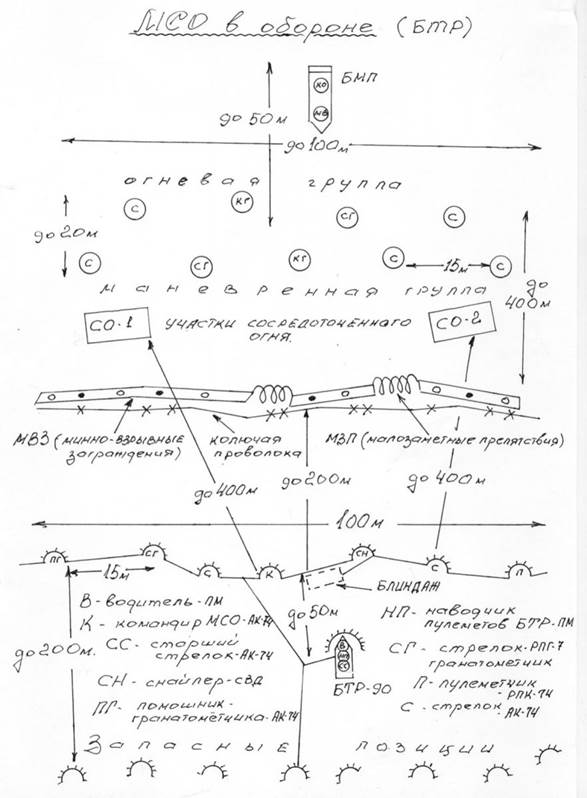 МСО в обороне (БТР)
БМП
КО
НВ
до 50м
до 100м
огневая группа
С
КГ
СГ
С
до 20м
С
СГ
КГ
С
15м
С
до 400м
маневренная группа
СО-1
участки сосредоточенного огня.
СО-2
МВЗ (минно-взрывные заграждения)
колючая проволока
МЗП (малозаметные препятствия)
до 400м
до 200м
до 400м
100м
ПГ
СГ
С
К
СН
С
П
15м
БЛИНДАЖ
до 50м
до 200м.
В-водитель-ПМ
К-командир МСО-АК-74
СС-сторший стрелок-АК-74
СН-снайпер-СВД
ПГ-помошник-гранатомётчика-АК-74
В
НП
СС
БТР-90
НП-наводчик пулеметов БТР-ПМ
СГ-стрелок-РПГ-7 гранатомётчик
П-пулеметчик-РПК-74
С-стрелок-АК-74
Запасные позиции